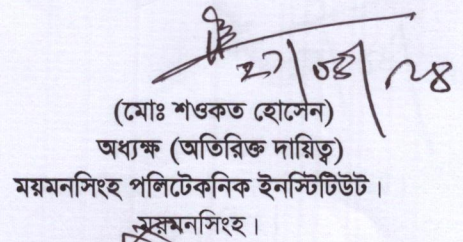 ২৭/০৪/২৪
(মোঃ শওকত হোসেন)
অধ্যক্ষ (অতিরিক্ত দায়িত্ব)
ময়মনসিংহ পলিটেকনিক ইনস্টিটিউট।
ময়মনসিংহ।